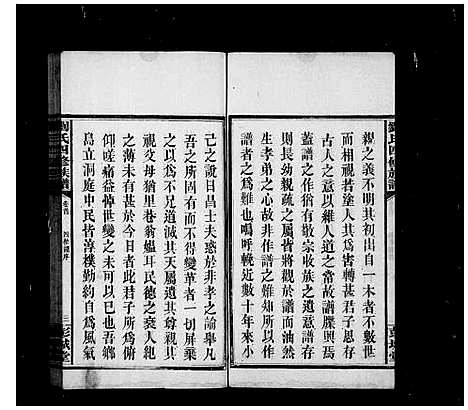 親之義不明其初出自一本者不數世
而相視若塗人其爲害轉甚君子思存
古人之意以維人道之常故譜牒興焉
蓋譜之作猶有敬宗收族之遺意譜存
則長幼親疏之屬皆將觀於譜而油然
生孝弟之心故非作譜之難知所以作
譜者之爲難也嗚呼輓近數十年來小
己之說日昌士夫惑於非孝之論舉凡
吾之所固有而不得變革者一切屏棄
之以爲不凡道滅其天屬遺其尊親其
視父母猶里巷翁媼耳民德之衰人紀
之斁未有甚於今日者此君子所爲俯
仰嗟痛益悼世變之未可以已也吾鄉
島立洞庭中民皆淳樸勤約自爲風氣
劉氏四修族譜
卷首
四修譜序
三
彭城堂